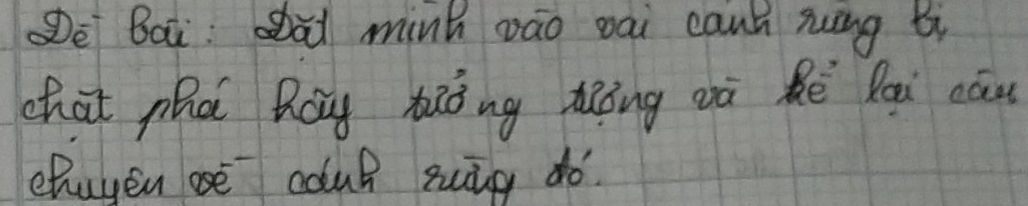 Đề Bài: Đặt mình vào vai cánh rừng bị
chặt phá hãy tưởng tượng và kể lại câu
chuyện về cánh rừng đó.